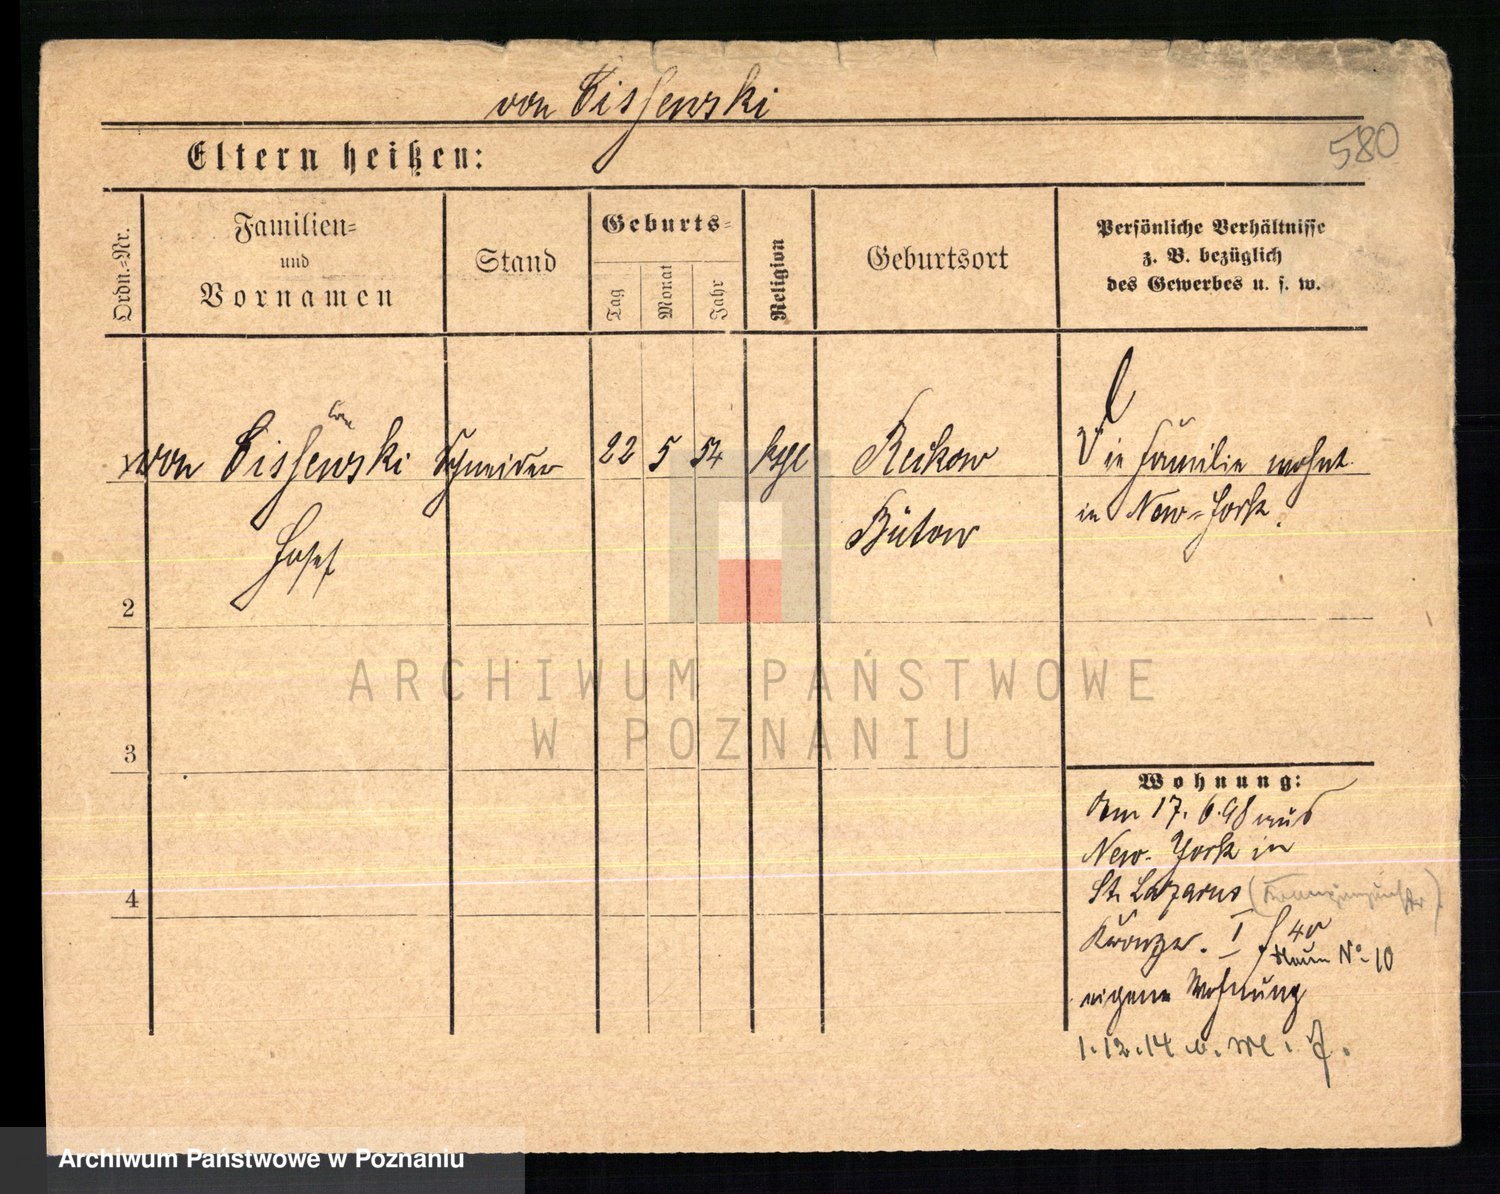 von Cissewski
580
Eltern heißen:
Ordn.-Nr.
Familien-
und
Vornamen
Stand
Geburts-
Tag
Monat
Jahr
Religion
Geburtsort
Persönliche Verhältnisse
z. B. bezüglich
des Gewerbes u. s. w.
von Cissewski Schneider 22 5 54 kgl Reckow Die Familie wohnt
Josef Bütow in New-York.
2
3
4
Wohnung:
Am 17. 6. 98 aus
New-York in
St. Lazarus
Kronprz. I
No 10
eigene Wohnung
1.12.14
ARCHIWUM PAŃSTWOWE
W POZNANIU
Archiwum Państwowe w Poznaniu